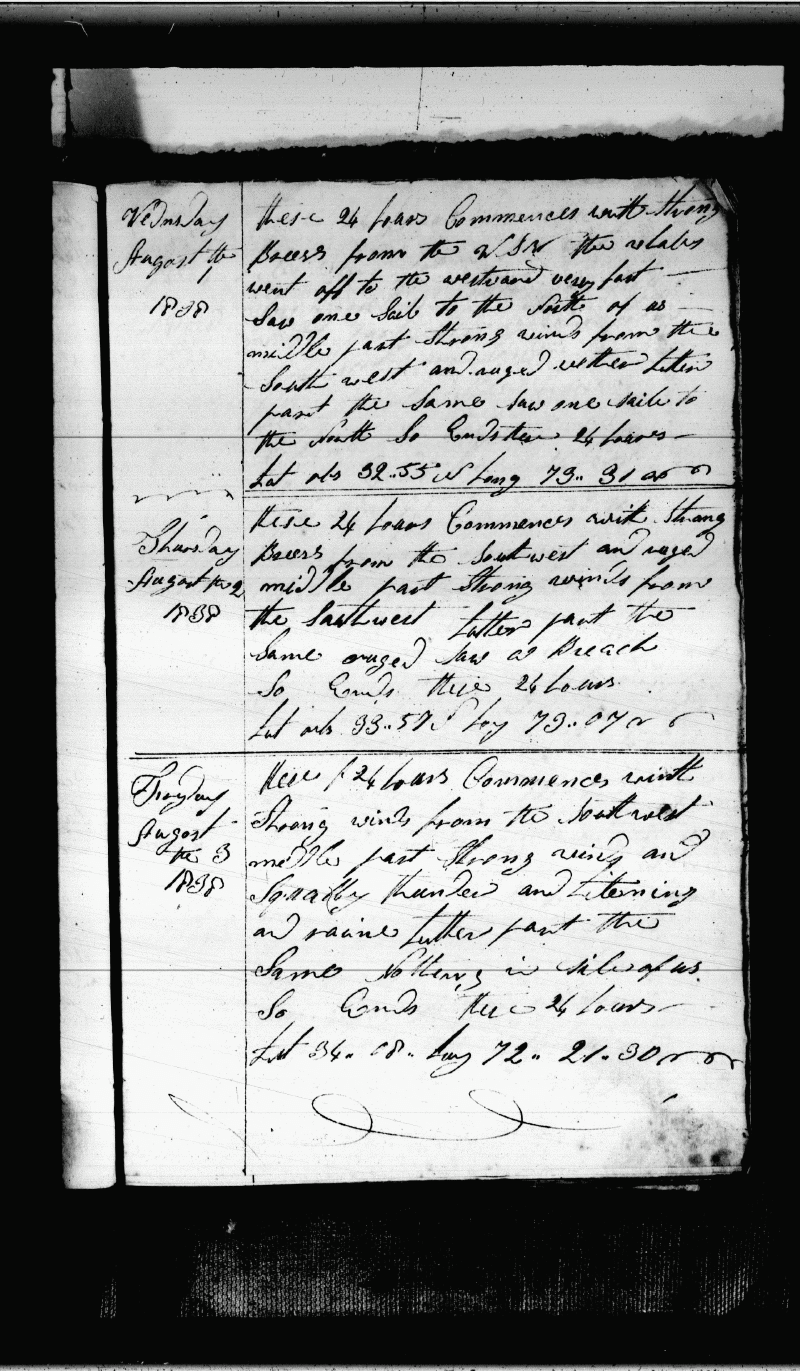 Wednsday
August the
1
1838
these 24 hours Commences with Strong
Breess from the WSW the whales
went off to the westward very fast
Saw one Sail to the North of us
middle part Strong winds from the
South west and ruged wether Latter
part the Same saw one saile to
the North So Ends these 24 hours
Lat obs 32..55 N Long 73..31
Thursday
August the 2
1838
these 24 hours Commences with Strong
Breess from the Southwest and ruged
middle part Strong winds from
the Southwest Latter part the
Same ruged Saw a Breach
So Ends these 24 hours
Lat obs 33..57 Long 73..07
Fryday
August
the 3
1838
these 24 hours Commences with
Strong winds from the Southwest
middle part Strong winds and
Squally thunder and Litening
and raine Latter part the
Same Nothing in Site of us
So Ends these 24 hours
Lat 34..08.. Long 72..21..30